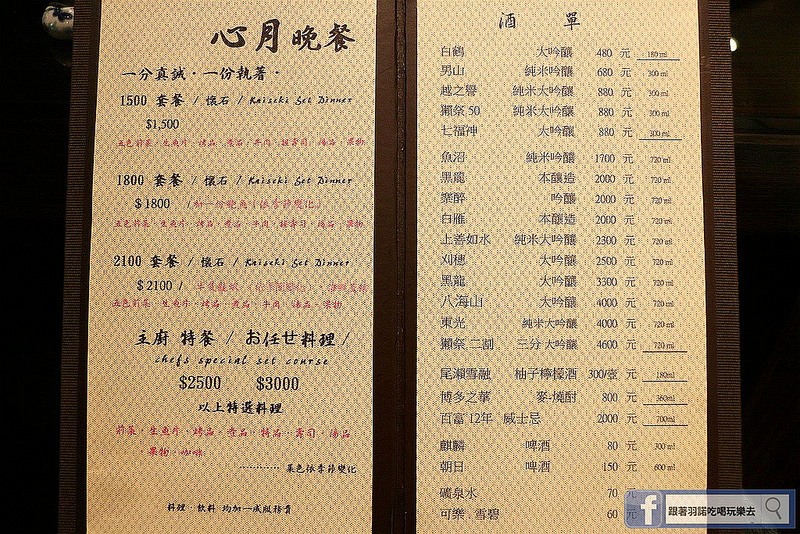 心月晚餐
一分真誠·一份執著·
1500 套餐 / 懷石 / Kaiseki Set Dinner
$1,500
五色前菜·生魚片·烤品·煮品·牛肉·握壽司·湯品·果物
1800 套餐 / 懷石 / Kaiseki Set Dinner
$1800 /
五色前菜·生魚片·烤品·煮品·牛肉·握壽司·湯品·果物
2100 套餐 / 懷石 / Kaiseki Set Dinner
$2100 /
五色前菜·生魚片·烤品·煮品·牛肉·湯品·果物
主廚 特餐 / お任せ料理 /
chefs special set course
$2500 $3000
以上特選料理
前菜·生魚片·烤品·煮品·壽司·湯品
·果物·咖啡
············菜色依季節變化
料理·飲料 均加一成服務費
酒 單
白鶴 大吟釀 480 元 180 ml
男山 純米吟釀 680 元 300 ml
越之譽 純米大吟釀 880 元 300 ml
獺祭 50 純米大吟釀 880 元 300 ml
七福神 大吟釀 880 元 300 ml
魚沼 純米吟釀 1700 元 720 ml
黑龍 本釀造 2000 元 720 ml
樂醉 吟釀 2000 元 720 ml
白雁 本釀造 2000 元 720 ml
上善如水 純米大吟釀 2300 元 720 ml
刈穗 大吟釀 2500 元 720 ml
黑龍 大吟釀 3300 元 720 ml
八海山 大吟釀 4000 元 720 ml
東光 純米大吟釀 4000 元 720 ml
獺祭 二割 三分 大吟釀 4600 元 720 ml
尾瀨雪融 柚子檸檬酒 300/壺 元 180ml
博多之華 麥-燒酎 800 元 360ml
百富 12年 威士忌 2000 元 700ml
麒麟 啤酒 80 元 300 ml
朝日 啤酒 150 元 600 ml
礦泉水 70 元
可樂 雪碧 60 元
f 跟著羽諾吃喝玩樂去